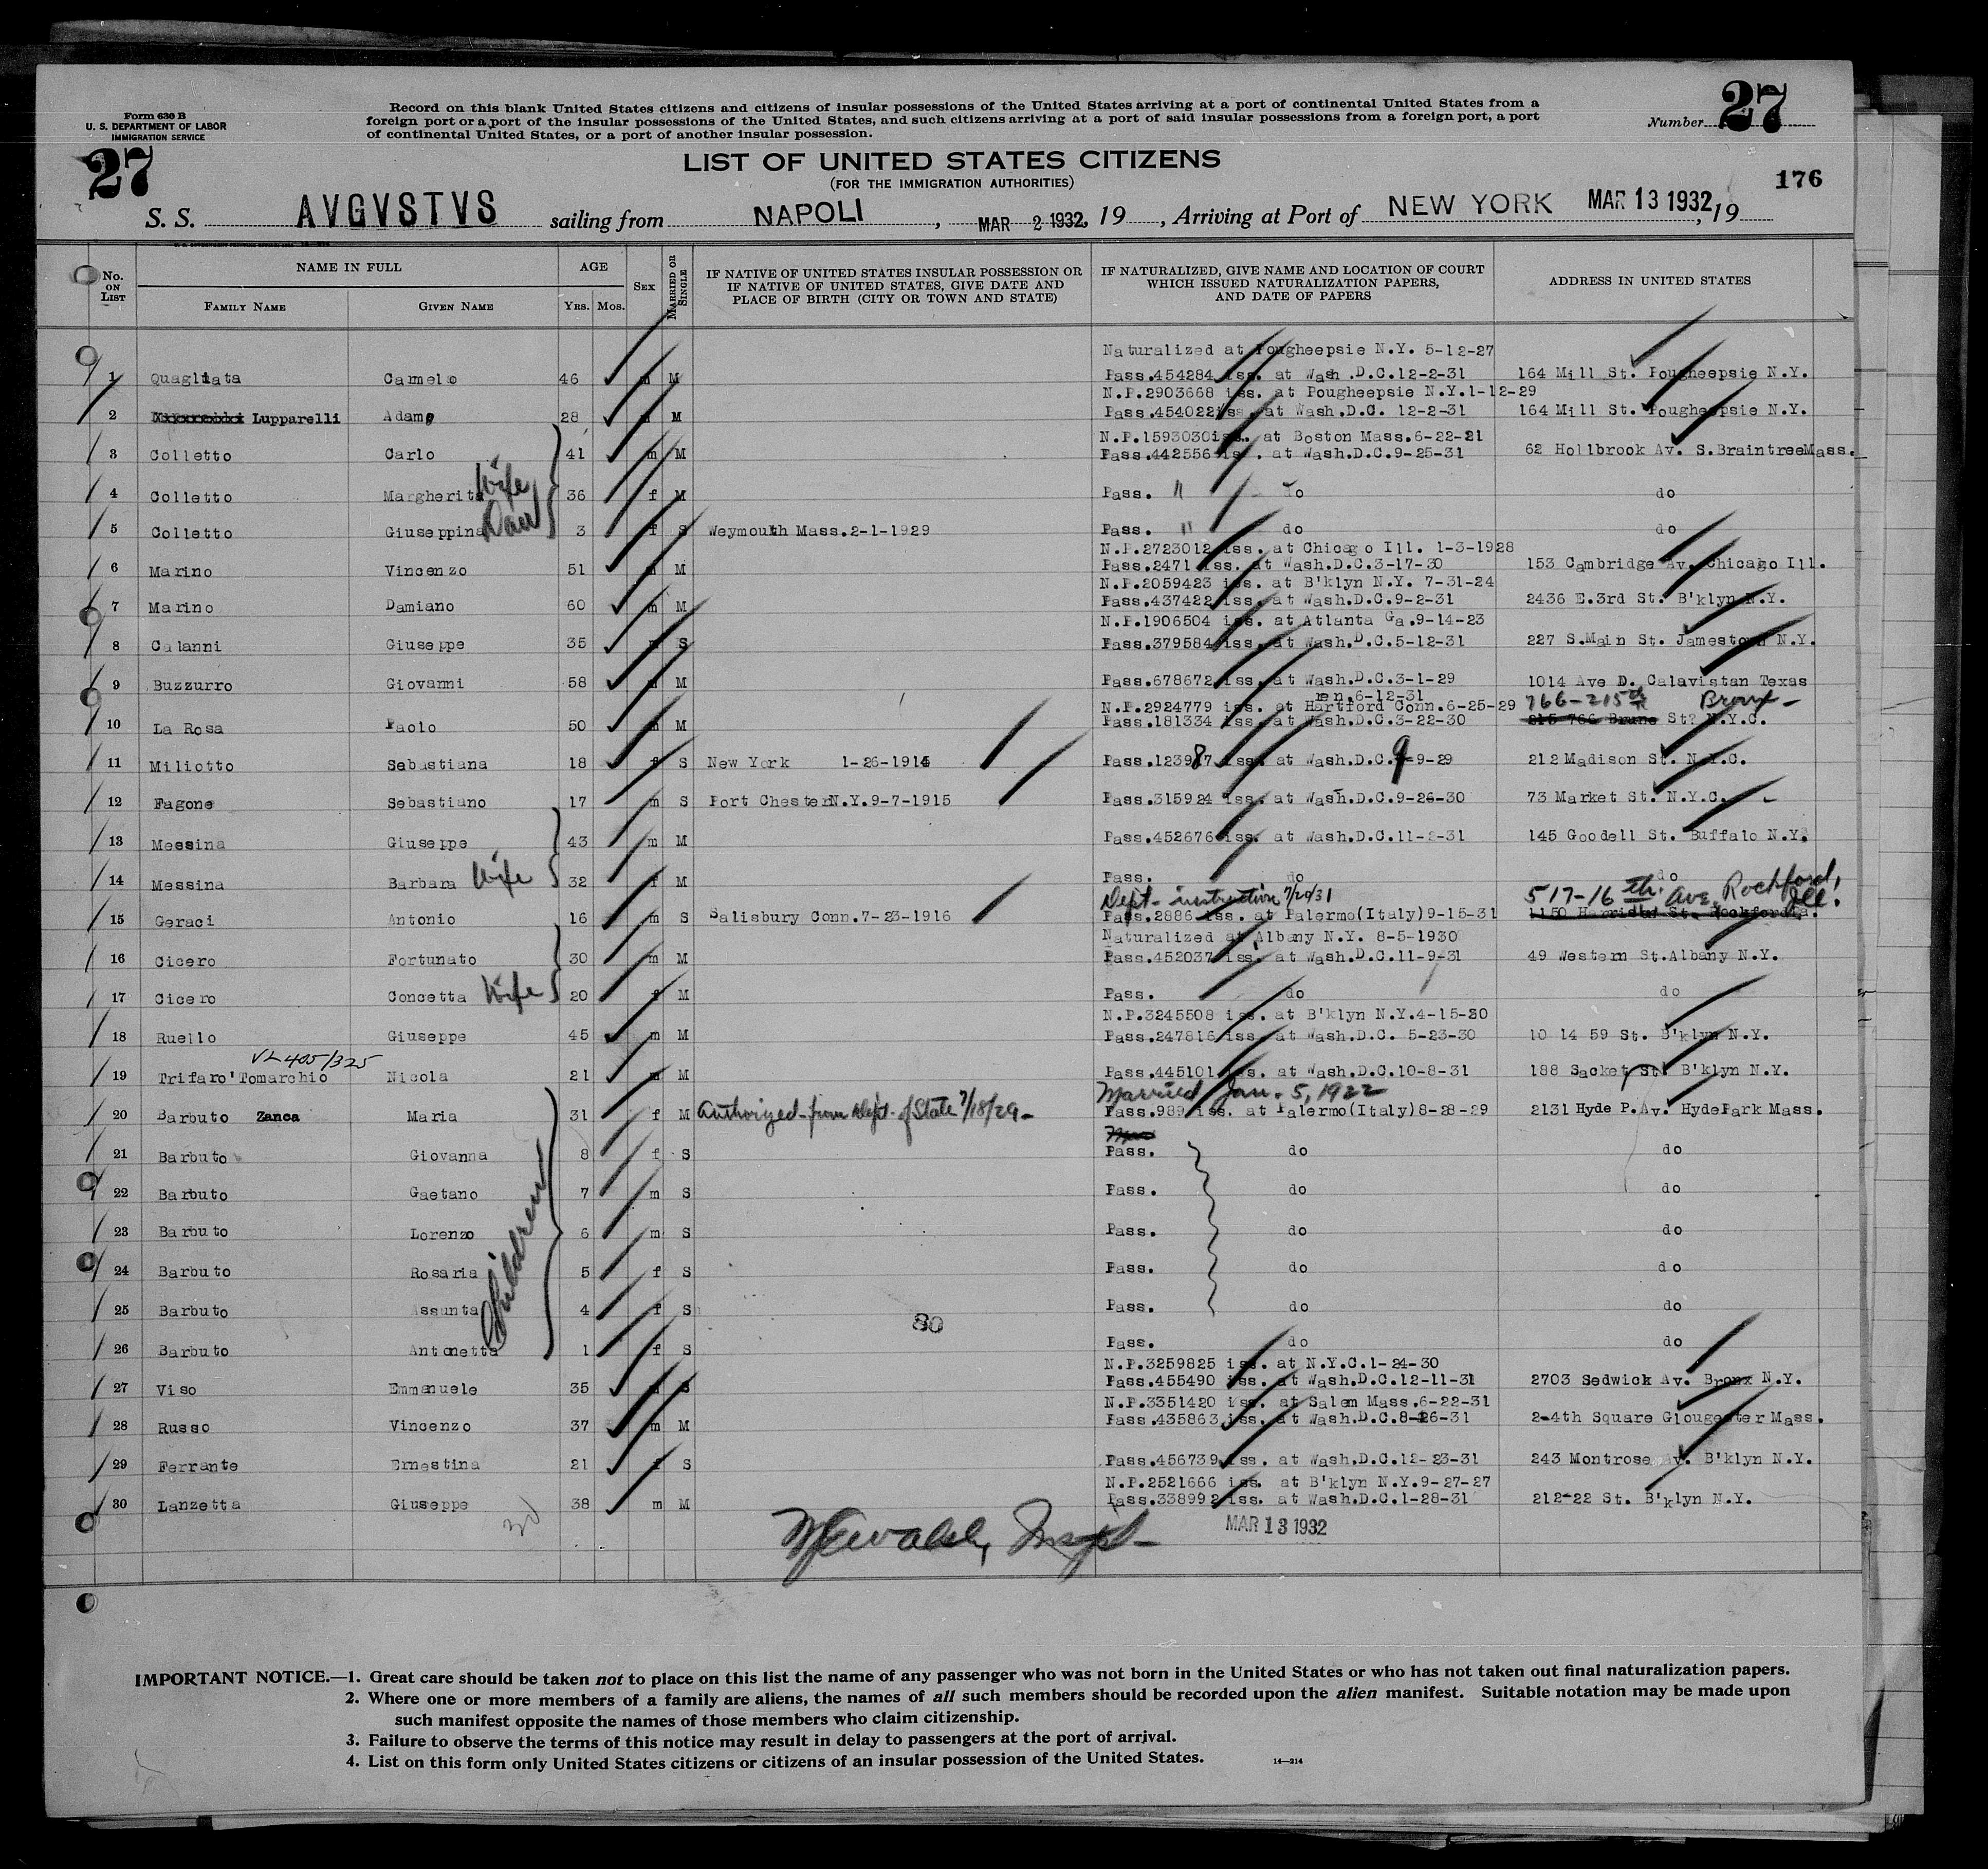 Form 630 B
U. S. DEPARTMENT OF LABOR
IMMIGRATION SERVICE
27
Record on this blank United States citizens and citizens of insular possessions of the United States arriving at a port of continental United States from a
foreign port or a port of the insular possessions of the United States, and such citizens arriving at a port of said insular possessions from a foreign port, a port
of continental United States, or a port of another insular possession.
Number 27
LIST OF UNITED STATES CITIZENS
(FOR THE IMMIGRATION AUTHORITIES)
176
S. S. AVGVSTVS sailing from NAPOLI, MAR 2 1932, 19 , Arriving at Port of NEW YORK MAR 13 1932, 19
No. ON LIST
NAME IN FULL
FAMILY NAME
GIVEN NAME
AGE
YRS. MOS.
SEX
MARRIED OR SINGLE
IF NATIVE OF UNITED STATES INSULAR POSSESSION OR
IF NATIVE OF UNITED STATES, GIVE DATE AND
PLACE OF BIRTH (CITY OR TOWN AND STATE)
IF NATURALIZED, GIVE NAME AND LOCATION OF COURT
WHICH ISSUED NATURALIZATION PAPERS,
AND DATE OF PAPERS
ADDRESS IN UNITED STATES
Naturalized at Pougheepsie N.Y. 5-12-27
1 Quagliata Camelo 46 m M Pass.454284 iss. at Wash.D.C.12-2-31 164 Mill St. Pougheepsie N.Y.
N.P.2903668 iss. at Pougheepsie N.Y.1-12-29
2 Lupparelli Adamo 28 m M Pass.454022iss. at Wash.D.C. 12-2-31 164 Mill St. Pougheepsie N.Y.
N.P.1593030iss. at Boston Mass.6-22-21
3 Colletto Carlo 41 m M Pass.442556 iss. at Wash.D.C.9-25-31 62 Hollbrook Av. S.BraintreeMass.
4 Colletto Margherita Wife 36 f M Pass. " do do
5 Colletto Giuseppina Dau 3 f S Weymouth Mass.2-1-1929 Pass. " do do
N.P.2723012 iss. at Chicago Ill. 1-3-1928
6 Marino Vincenzo 51 m M Pass.2471 iss. at Wash.D.C.3-17-30 153 Cambridge Av. Chicago Ill.
N.P.2059423 iss. at B'klyn N.Y. 7-31-24
7 Marino Damiano 60 m M Pass.437422 iss. at Wash.D.C.9-2-31 2436 E.3rd St. B'klyn N.Y.
N.P.1906504 iss. at Atlanta Ga.9-14-23
8 Calanni Giuseppe 35 m S Pass.379584 iss. at Wash.D.C.5-12-31 227 S.Main St. Jamestown N.Y.
9 Buzzurro Giovanni 58 m M Pass.678672 iss. at Wash.D.C.3-1-29 1014 Ave D. Calavistan Texas
ren.6-12-31
N.P.2924779 iss. at Hartford Conn.6-25-29 766-215th Bronx-
10 La Rosa Paolo 50 m M Pass.181334 iss. at Wash.D.C.3-22-30 215 766 Brune St? N.Y.C.
11 Miliotto Sebastiana 18 f S New York 1-26-1914 Pass.123987 iss. at Wash.D.C.9-9-29 212 Madison St. N.Y.C.
12 Fagone Sebastiano 17 m S Port Chester N.Y.9-7-1915 Pass.315924 iss. at Wash.D.C.9-26-30 73 Market St. N.Y.C.
13 Messina Giuseppe 43 m M Pass.452676 iss. at Wash.D.C.11-2-31 145 Goodell St. Buffalo N.Y.
14 Messina Barbara Wife 32 f M Pass. do do
Dept- instruction 7/20/31 517-16th. Ave. Rockford, Ill.
15 Geraci Antonio 16 m S Salisbury Conn.7-23-1916 Pass.2886 iss. at Palermo(Italy)9-15-31
Naturalized at Albany N.Y. 8-5-1930
16 Cicero Fortunato 30 m M Pass.452037 iss. at Wash.D.C.11-9-31 49 Western St.Albany N.Y.
17 Cicero Concetta Wife 20 f M Pass. do do
N.P.3245508 iss. at B'klyn N.Y.4-15-30
18 Ruello Giuseppe 45 m M Pass.247816 iss. at Wash.D.C. 5-23-30 10 14 59 St. B'klyn N.Y.
VL 405/325
19 Trifaro'Tomarchio Nicola 21 m M Pass.445101 iss. at Wash.D.C.10-8-31 188 Sacket St. B'klyn N.Y.
Married Jan. 5, 1922
20 Barbuto Zanca Maria 31 f M Authorized from Dept. of State 7/18/29- Pass.989 iss. at Palermo(Italy)8-28-29 2131 Hyde P.Av. HydePark Mass.
21 Barbuto Giovanna 8 f S Pass. do do
22 Barbuto Gaetano 7 m S Pass. do do
23 Barbuto Lorenzo 6 m S Pass. do do
Children
24 Barbuto Rosaria 5 f S Pass. do do
25 Barbuto Assunta 4 f S Pass. do do
80
26 Barbuto Antonetta 1 f S Pass. do do
N.P.3259825 iss. at N.Y.C.1-24-30
27 Viso Emmanuele 35 m S Pass.455490 iss. at Wash.D.C.12-11-31 2703 Sedwick Av. Bronx N.Y.
N.P.3351420 iss. at Salem Mass.6-22-31
28 Russo Vincenzo 37 m M Pass.435863 iss. at Wash.D.C.8-26-31 2-4th Square Glougester Mass.
29 Ferrante Ernestina 21 f S Pass.456739 iss. at Wash.D.C.12-23-31 243 Montrose Av. B'klyn N.Y.
N.P.2521666 iss. at B'klyn N.Y.9-27-27
30 Lanzetta Giuseppe 38 m M Pass.338992 iss. at Wash.D.C.1-28-31 212-22 St. B'klyn N.Y.
30
MAR 13 1932
IMPORTANT NOTICE.—1. Great care should be taken not to place on this list the name of any passenger who was not born in the United States or who has not taken out final naturalization papers.
2. Where one or more members of a family are aliens, the names of all such members should be recorded upon the alien manifest. Suitable notation may be made upon
such manifest opposite the names of those members who claim citizenship.
3. Failure to observe the terms of this notice may result in delay to passengers at the port of arrival.
4. List on this form only United States citizens or citizens of an insular possession of the United States.
14—214